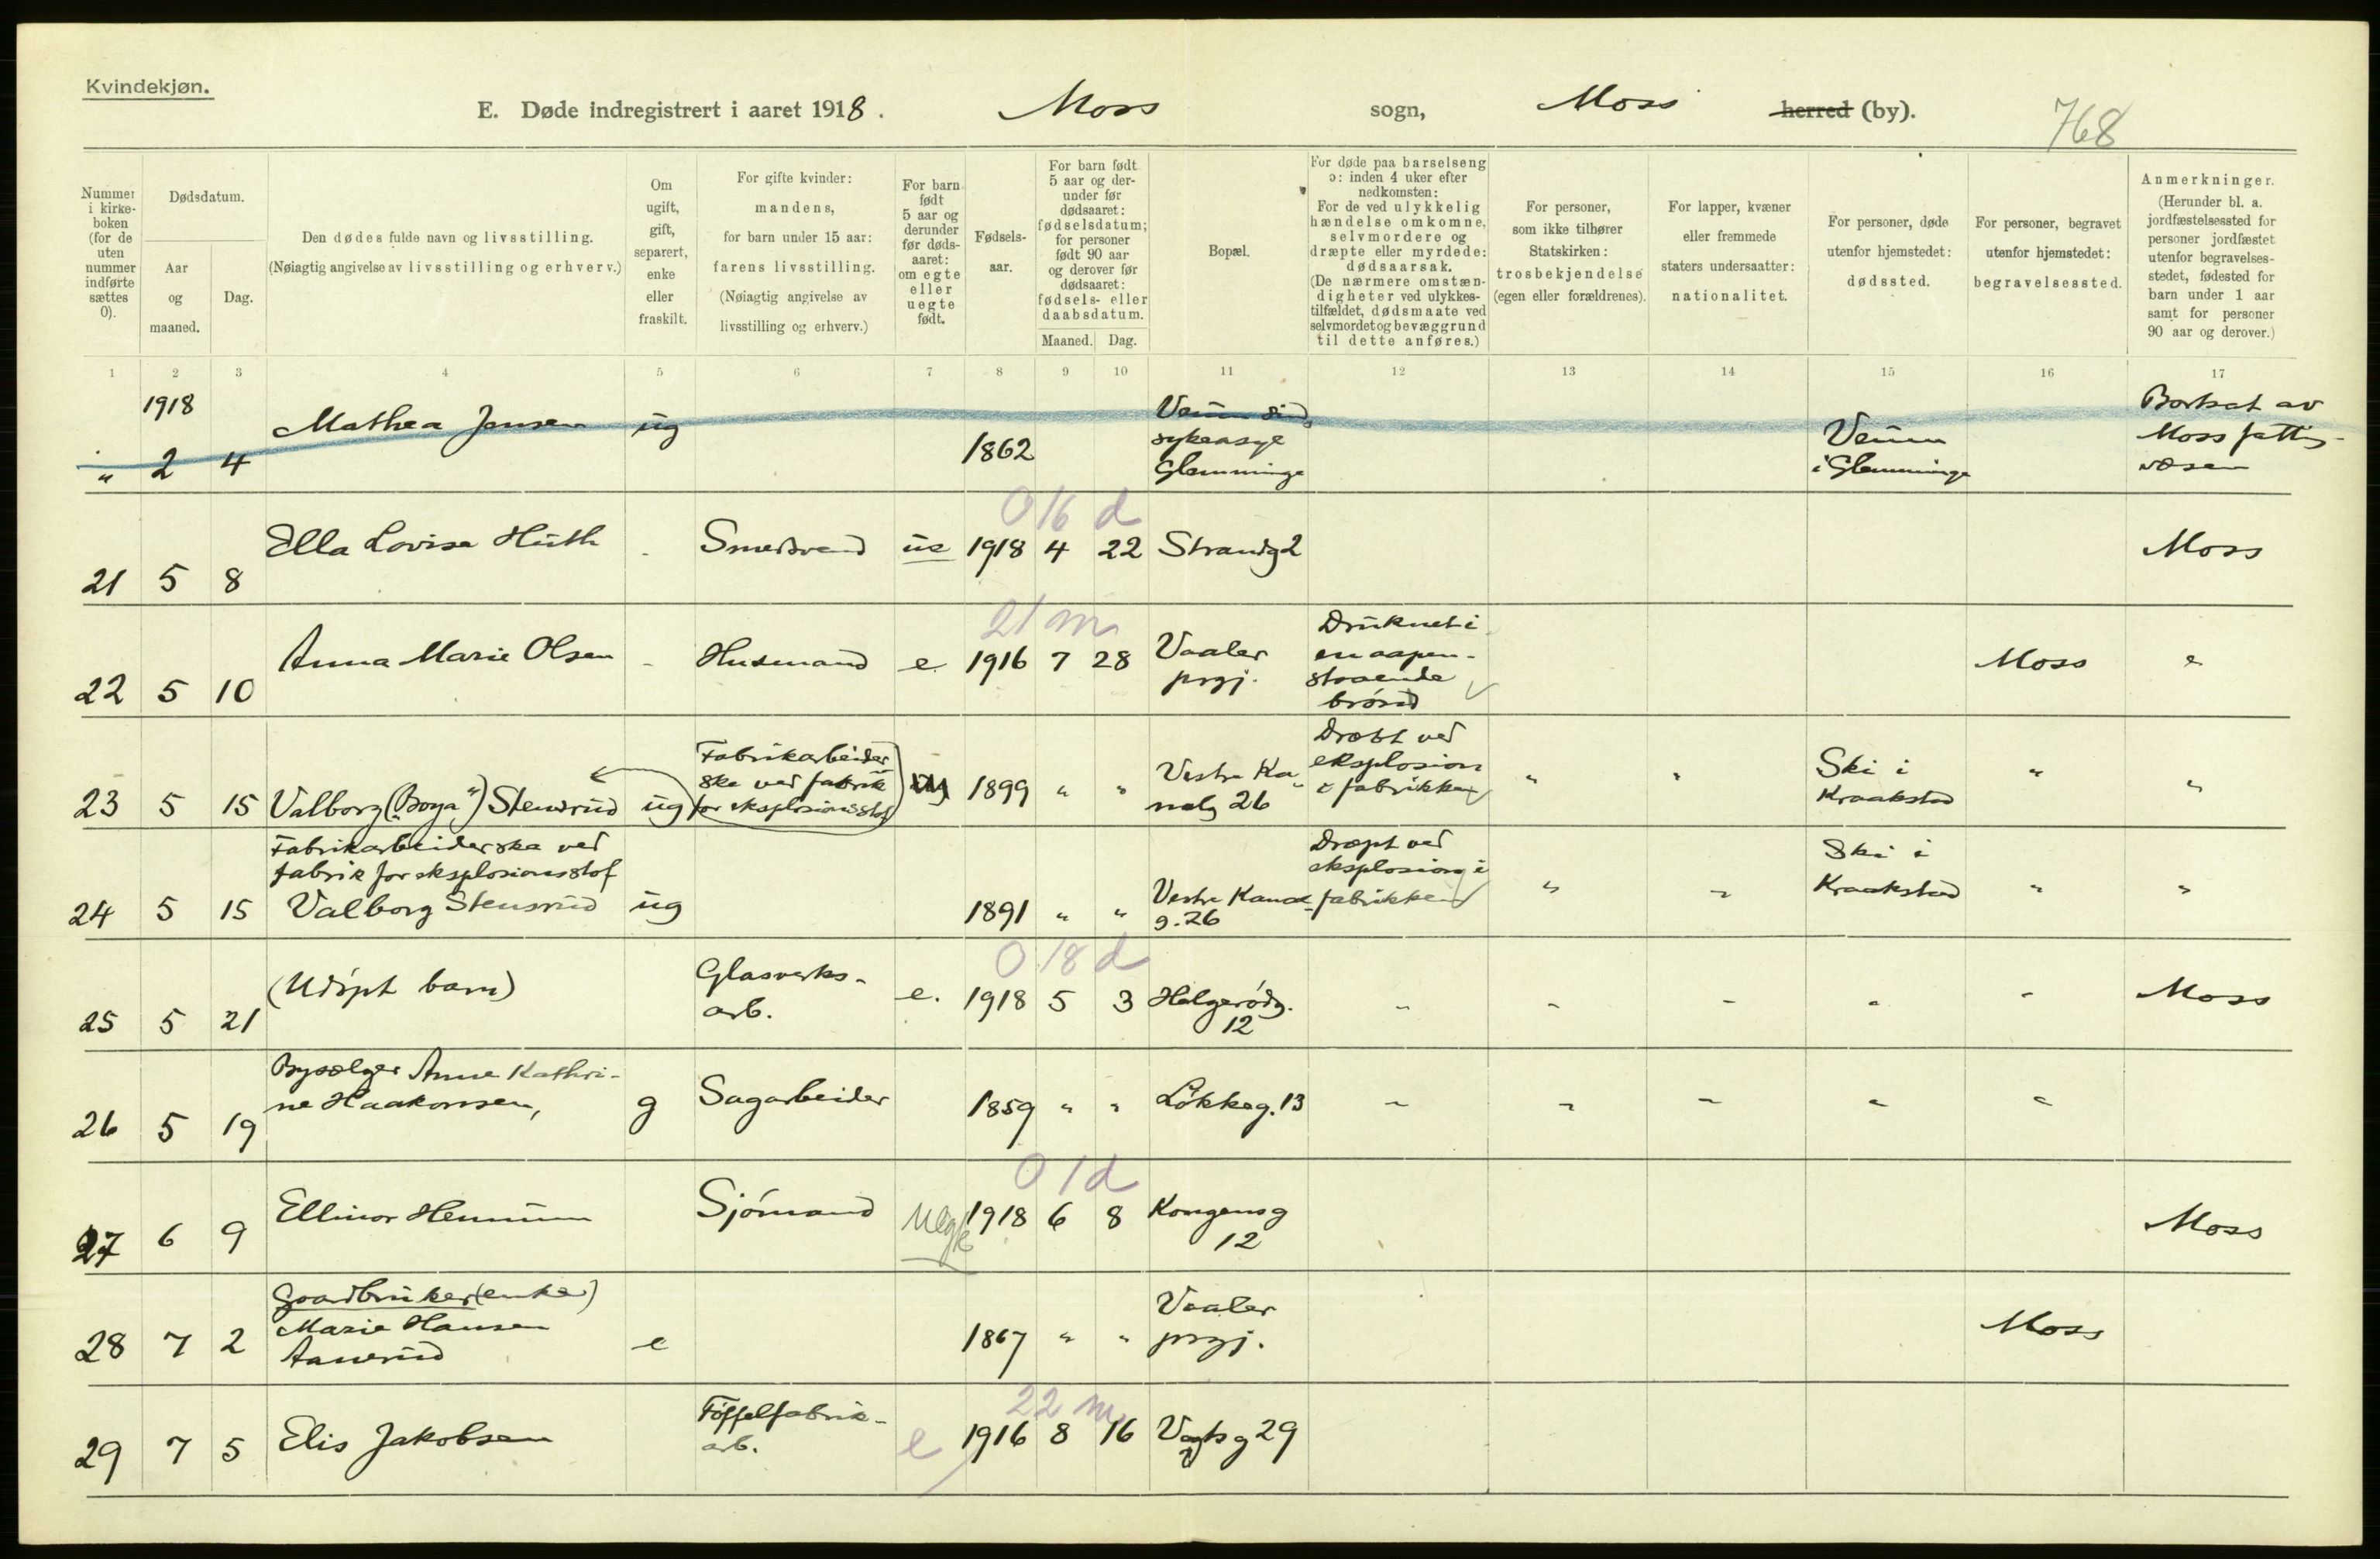 Kvindekjøn.
E. Døde indregistrert i aaret 1918. Moss sogn, Moss herred (by).
768
Nummer i kirke-boken (for de uten nummer indførte sættes 0).
Dødsdatum.
Aar og maaned.
Dag.
Den dødes fulde navn og livsstilling.
(Nøiagtig angivelse av livsstilling og erhverv.)
Om ugift, gift, separert, enke eller fraskilt.
For gifte kvinder:
mandens,
for barn under 15 aar:
farens livsstilling.
(Nøiagtig angivelse av
livsstilling og erhverv.)
For barn født 5 aar og derunder før døds-aaret: om egte eller uegte født.
Fødsels-aar.
For barn født 5 aar og der-under før dødsaaret: fødselsdatum; for personer født 90 aar og derover før dødsaaret: fødsels- eller daabsdatum.
Maaned. Dag.
Bopæl.
For døde paa barselseng
ɔ: inden 4 uker efter
nedkomsten:
For de ved ulykkelig
hændelse omkomne,
selvmordere og
dræpte eller myrdede:
dødsaarsak.
(De nærmere omstæn-
digheter ved ulykkes-
tilfældet, dødsmaate ved
selvmordet og bevæggrund
til dette anføres.)
For personer,
som ikke tilhører
Statskirken:
trosbekjendelse
(egen eller forældrenes).
For lapper, kvæner
eller fremmede
staters undersaatter:
nationalitet.
For personer, døde
utenfor hjemstedet:
dødssted.
For personer, begravet
utenfor hjemstedet:
begravelsessted.
Anmerkninger.
(Herunder bl. a.
jordfæstelsessted for
personer jordfæstet
utenfor begravelses-
stedet, fødested for
barn under 1 aar
samt for personer
90 aar og derover.)
1 2 3 4 5 6 7 8 9 10 11 12 13 14 15 16 17
1918
" 2 4 Mathea Jensen ug 1862 Veum sind
sykeasyl
Glemminge
Veum
i Glemminge
Bortsat av
Moss fattig-
væsen
0 16 d
21 5 8 Ella Lovise Huth - Smedsvend ue 1918 4 22 Strandg 2 Moss
21 m
22 5 10 Anna Marie Olsen - Husmand e. 1916 7 28 Vaaler
prgj.
Druknet i
en aapen-
staaende
brønd
Moss "
23 5 15 Valborg („Boya") Stensrud ug
Fabrikarbeider
ske ved fabrik
for eksplosionsstof
1899 " " Vestre Ka-
nalg 26
Dræbt ved
eksplosion
i fabrikken
" " Ski i
Kraakstad
" "
24 5 15 Fabrikarbeiderske ved
fabrik for eksplosionsstof
Valborg Stensrud ug 1891 " " Vestre Kanal
g. 26
Dræpt ved
eksplosion i
fabrikken
" " Ski i
Kraakstad
" "
0 18 d
25 5 21 (Udöpt barn) Glasverks-
arb.
e. 1918 5 3 Helgerödg.
12
- - - - - Moss
26 5 19 Bysælger Anne Kathri-
ne Haakonsen, g Sagarbeider 1859 " " Løkkeg. 13 - - - - -
0 1 d
27 6 9 Ellinor Hennum Sjömand Uegte 1918 6 8 Kongensg
12
Moss
28 7 2 Gaardbruker (enke)
Marie Hansen
Aanerud
e 1867 " " Vaaler
prgj.
Moss
22 m
29 7 5 Elis Jakobsen Töffelfabrik-
arb.
e 1916 8 16 Vogtsg 29